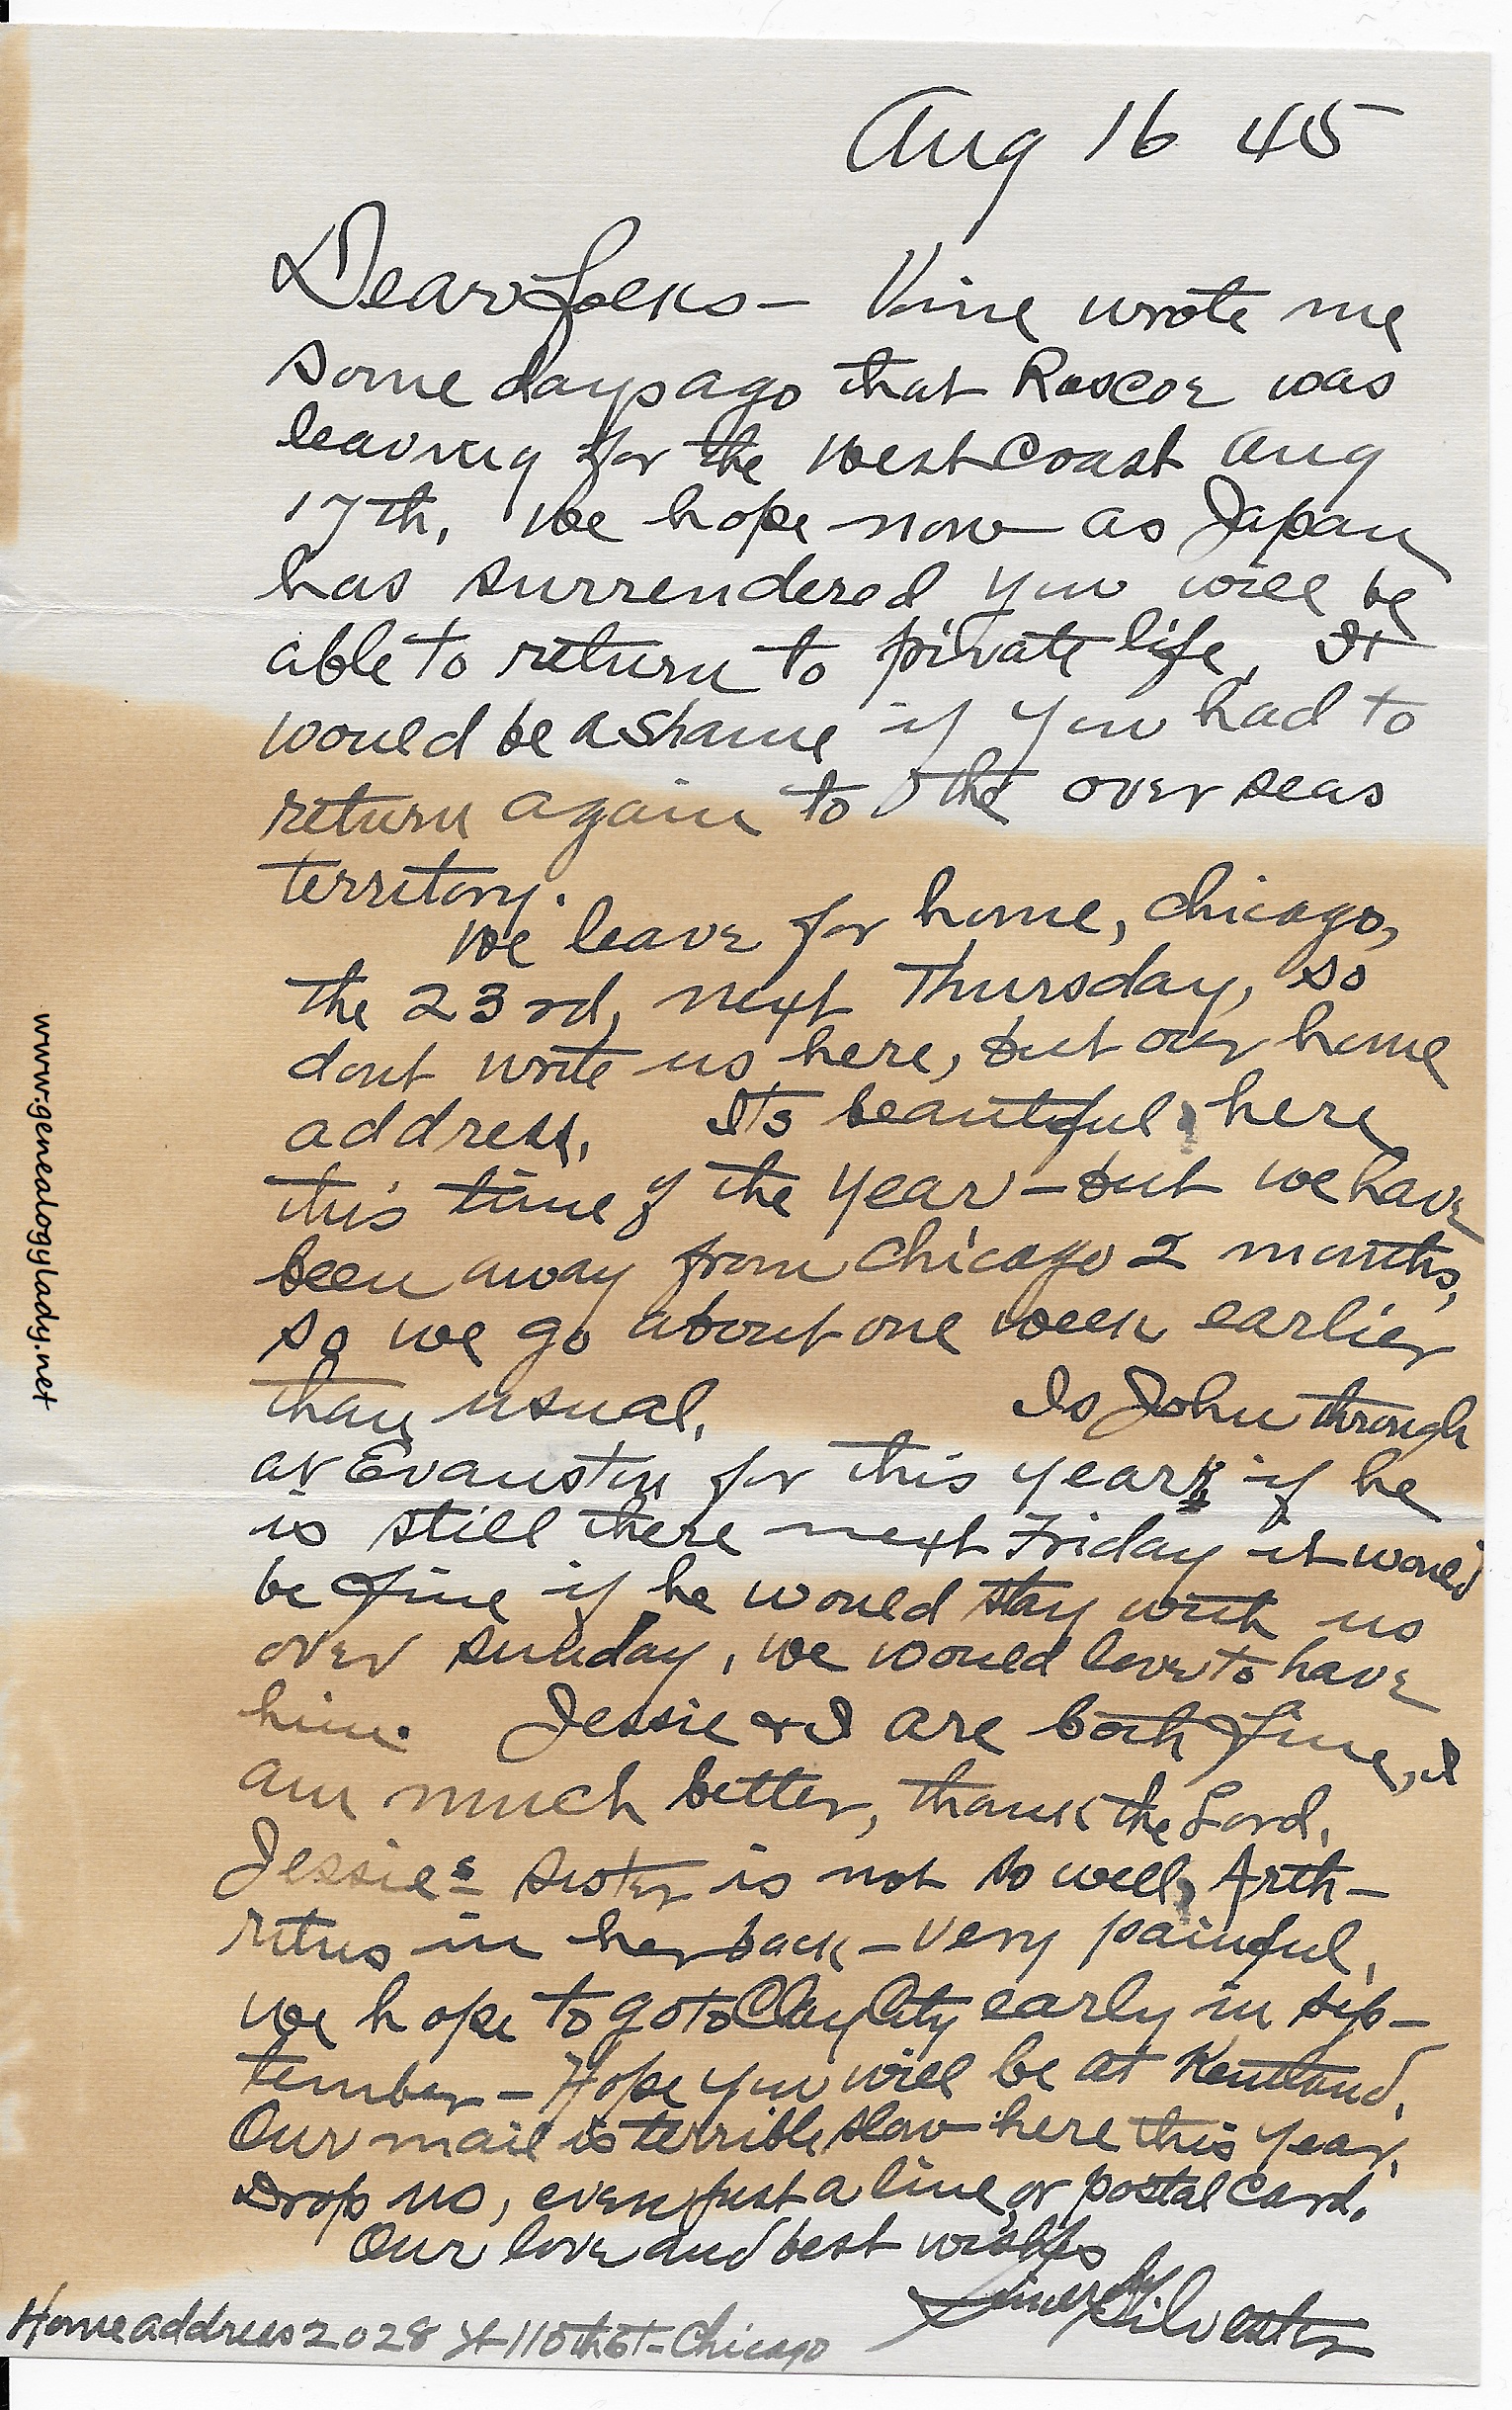 Aug 16 45
Dear folks – Vine wrote me
some days ago that Roscoe was
leaving for the West Coast Aug
17th. We hope now as Japan
has surrendered you will be
able to return to private life. It
would be a shame if you had to
return again to the over seas
territory.
We leave for home, Chicago,
the 23rd, next Thursday, so
dont write us here, but our home
address. Its beautiful here
this time of the year – but we have
been away from Chicago 2 months,
so we go about one week earlier
than usual. Is John through
at Evanston for this year, if he
is still there next Friday it would
be fine if he would stay with us
over Sunday, we would love to have
him. Jessie & I are both fine, I
am much better, thank the Lord.
Jessies sister is not so well, Arth-
ritus in her back – very painful.
We hope to go to Clay City early in Sep-
tember – Hope you will be at Kentland.
Our mail is terrible slow here this year.
Drop us, even just a line, or postal card.
Our love and best wishes
Sincerely Silvester
Home address 2028 W 110th St – Chicago
www.genealogylady.net